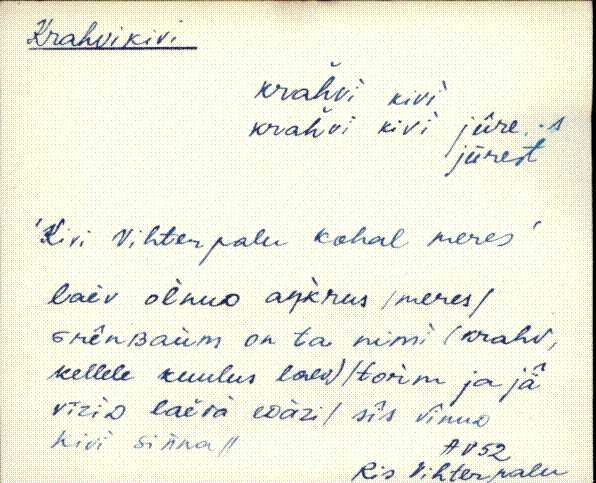 Krahvikivi
krahvi kivi
krahvi kivi jūre, -s
jūrest
'Kivi Vihterpalu kohal meres'
laèv òlnuᴅ aŋ̀krus /meres/
ɢrênʙaùm on ta nimì (krahv,
kellele kuulus laev) / torìm ja jǟ
vīziᴅ laèvà eᴅàzi / sîs vīnuᴅ
kivi siǹna //
AV 52
Ris Vihterpalu